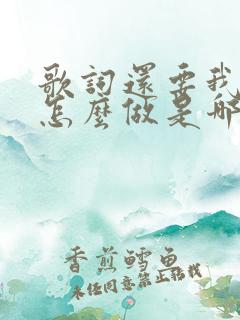 歌詞還要我
怎麼做是哪
香煎鱈魚
未經同意禁止轉載